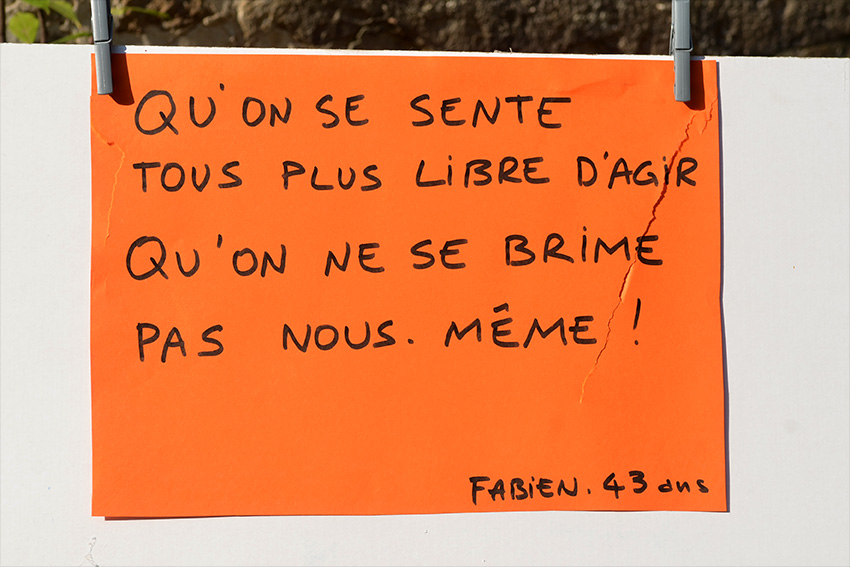 QU'ON SE SENTE
TOUS PLUS LiBRE D'AGiR
QU'ON NE SE BRiME
PAS NOUS. MÊME !
FABiEN. 43 ans